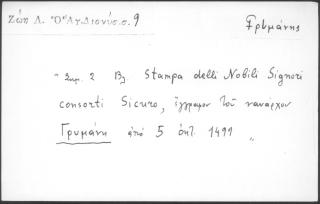 Ζώη Λ. Ὁ Ἅγ. Διονύσ. σ. 9
Γρυμάνης
" Σημ. 2 Βλ. Stampa delli Nobili Signori
consorti Sicuro, ἔγγραφον τοῦ ναυάρχου
Γρυμάνη ἀπό 5 ὀκτ. 1491 "